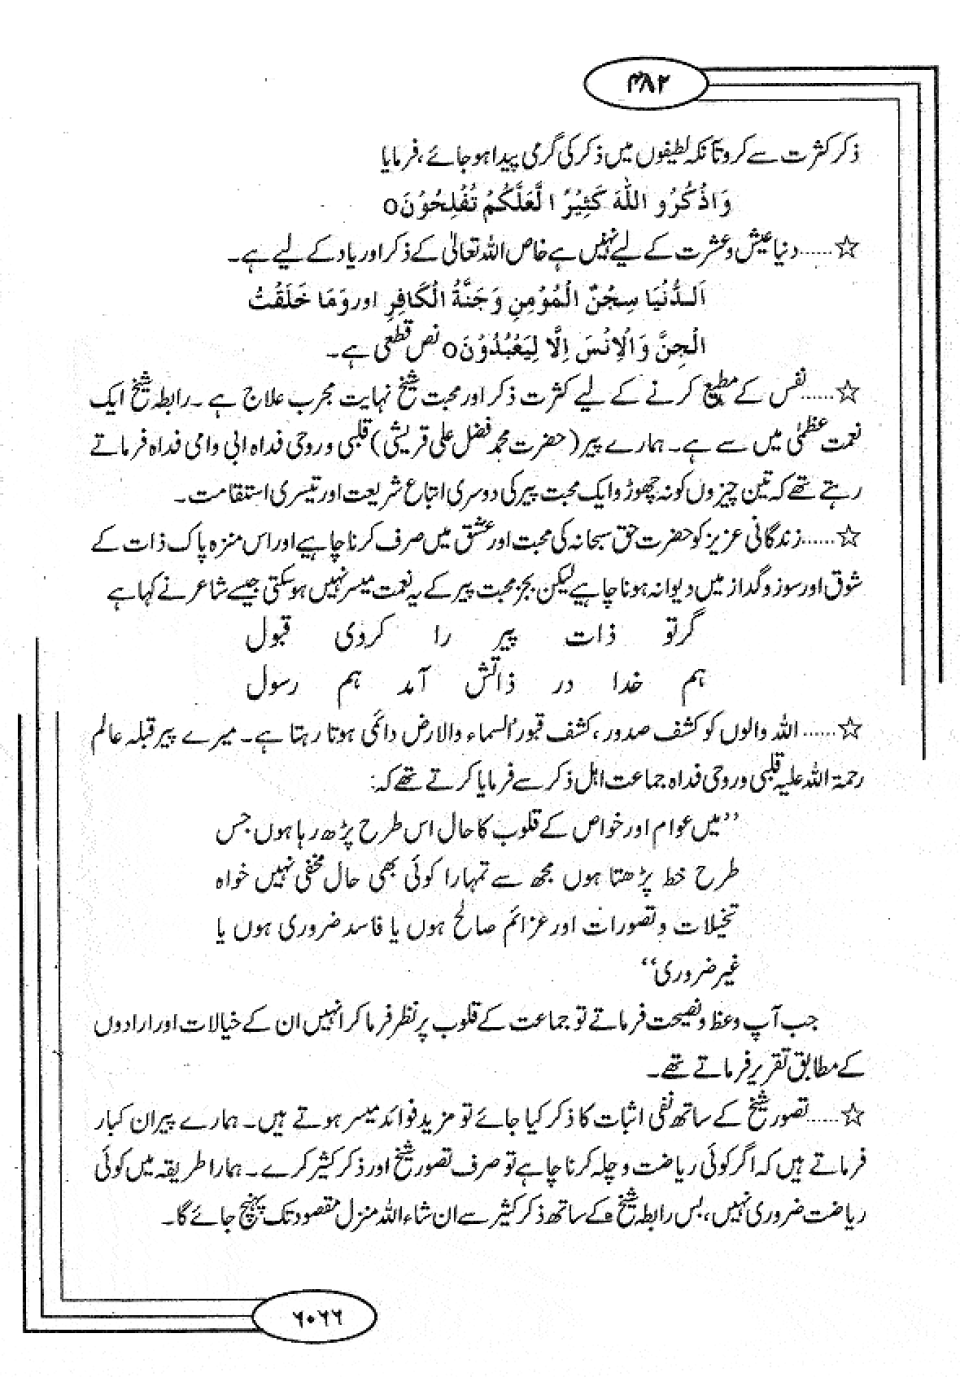 ۴۸۲
ذکر کثرت سے کرو تا نکہ لطیفوں میں ذکر کی گرمی پیدا ہو جائے، فرمایا
وَاذْكُرُو اللهَ كَثِيْرً الَّعَلَّكُمْ تُفْلِحُوْنَ0
☆......دنیا عیش و عشرت کے لیے نہیں ہے خاص اللہ تعالیٰ کے ذکر اور یاد کے لیے ہے۔
اَلدُّنْيَا سِجْنٌ الْمُؤْمِنِ وَجَنَّةُ الْكَافِرِ اور وَمَا خَلَقْتُ
الْجِنَّ وَالْاِنْسَ اِلَّا لِيَعْبُدُوْنَ0 نص قطعی ہے۔
☆......نفس کے مطیع کرنے کے لیے کثرت ذکر اور محبت شیخ نہایت مجرب علاج ہے۔ رابطہ شیخ ایک
نعمت عظمیٰ میں سے ہے۔ ہمارے پیر (حضرت محمد فضل علی قریشی) قلبی و روحی فداہ ابی وامی فداہ فرماتے
رہتے تھے کہ تین چیزوں کو نہ چھوڑو ایک محبت پیر کی دوسری اتباع شریعت اور تیسری استقامت۔
☆......زندگانی عزیز کو حضرت حق سبحانہ کی محبت اور عشق میں صرف کرنا چاہیے اور اس منزہ پاک ذات کے
شوق اور سوز و گداز میں دیوانہ ہونا چاہیے لیکن بجز محبت پیر کے یہ نعمت میسر نہیں ہو سکتی جیسے شاعر نے کہا ہے
گرتو ذات پیر را کردی قبول
ہم خدا در ذاتش آمد ہم رسول
☆...... اللہ والوں کو کشف صدور، کشف قبور السماء والارض دائمی ہوتا رہتا ہے۔ میرے پیر قبلہ عالم
رحمۃ اللہ علیہ قلبی و روحی فداہ جماعت اہل ذکر سے فرمایا کرتے تھے کہ:
’’میں عوام اور خواص کے قلوب کا حال اس طرح پڑھ رہا ہوں جس
طرح خط پڑھتا ہوں مجھ سے تمہارا کوئی بھی حال مخفی نہیں خواہ
تخیلات و تصورات اور عزائم صالح ہوں یا فاسد ضروری ہوں یا
غیر ضروری‘‘
جب آپ وعظ و نصیحت فرماتے تو جماعت کے قلوب پر نظر فرما کر انہیں ان کے خیالات اور ارادوں
کے مطابق تقریر فرماتے تھے۔
☆.....تصور شیخ کے ساتھ نفی اثبات کا ذکر کیا جائے تو مزید فوائد میسر ہوتے ہیں۔ ہمارے پیران کبار
فرماتے ہیں کہ اگر کوئی ریاضت و چلہ کرنا چاہے تو صرف تصور شیخ اور ذکر کثیر کرے۔ ہمارا طریقہ میں کوئی
ریاضت ضروری نہیں، بس رابطہ شیخ کے ساتھ ذکر کثیر سے ان شاء اللہ منزل مقصود تک پہنچ جائے گا۔
۶۰۶۶